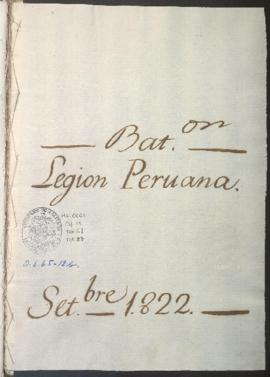 — Bat.on —
Legion Peruana.
O.L.65-12a.
Set.bre 1.822. —